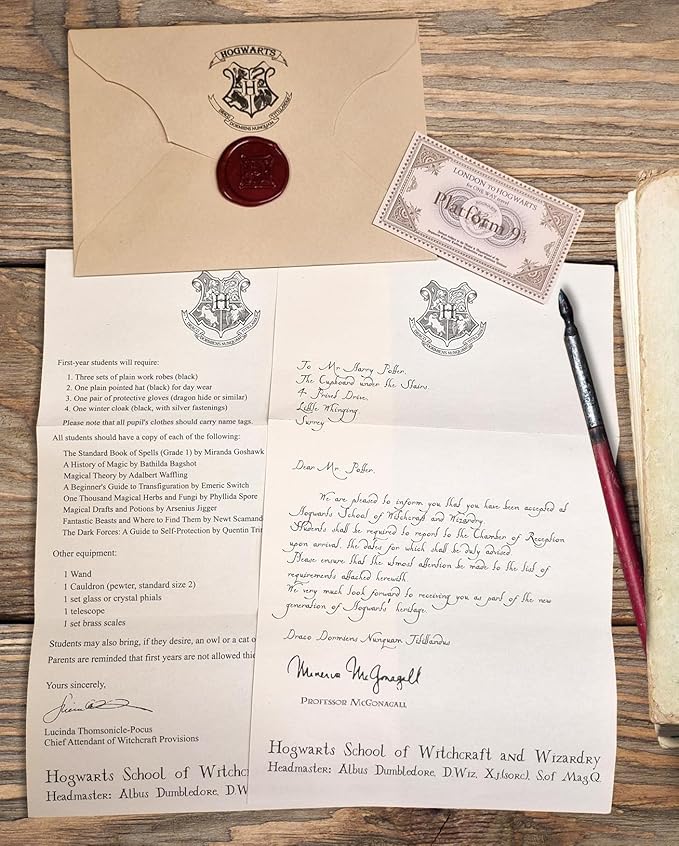 HOGWARTS
DRACO DORMIENS NUNQUAM TITILLANDUS
LONDON TO HOGWARTS
for ONE WAY travel
Platform 9¾
First-year students will require:
1. Three sets of plain work robes (black)
2. One plain pointed hat (black) for day wear
3. One pair of protective gloves (dragon hide or similar)
4. One winter cloak (black, with silver fastenings)
Please note that all pupil's clothes should carry name tags.
All students should have a copy of each of the following:
The Standard Book of Spells (Grade 1) by Miranda Goshawk
A History of Magic by Bathilda Bagshot
Magical Theory by Adalbert Waffling
A Beginner's Guide to Transfiguration by Emeric Switch
One Thousand Magical Herbs and Fungi by Phyllida Spore
Magical Drafts and Potions by Arsenius Jigger
Fantastic Beasts and Where to Find Them by Newt Scamand
The Dark Forces: A Guide to Self-Protection by Quentin Trim
Other equipment:
1 Wand
1 Cauldron (pewter, standard size 2)
1 set glass or crystal phials
1 telescope
1 set brass scales
Students may also bring, if they desire, an owl or a cat o
Parents are reminded that first years are not allowed thei
Yours sincerely,
Lucinda Thomsonicle-Pocus
Chief Attendant of Witchcraft Provisions
Hogwarts School of Witchc
Headmaster: Albus Dumbledore, D.W
To Mr Harry Potter,
The Cupboard under the Stairs,
4 Privet Drive,
Little Whinging,
Surrey
Dear Mr. Potter,
We are pleased to inform you that you have been accepted at
Hogwarts School of Witchcraft and Wizardry.
Students shall be required to report to the Chamber of Reception
upon arrival, the dates for which shall be duly advised.
Please ensure that the utmost attention be made to the list of
requirements attached herewith.
We very much look forward to receiving you as part of the new
generation of Hogwarts' heritage.
Draco Dormiens Nunquam Titillandus
Minerva McGonagall
PROFESSOR MCGONAGALL
Hogwarts School of Witchcraft and Wizardry
Headmaster: Albus Dumbledore, D.Wiz, X.J.(sorc), S.of Mag.Q